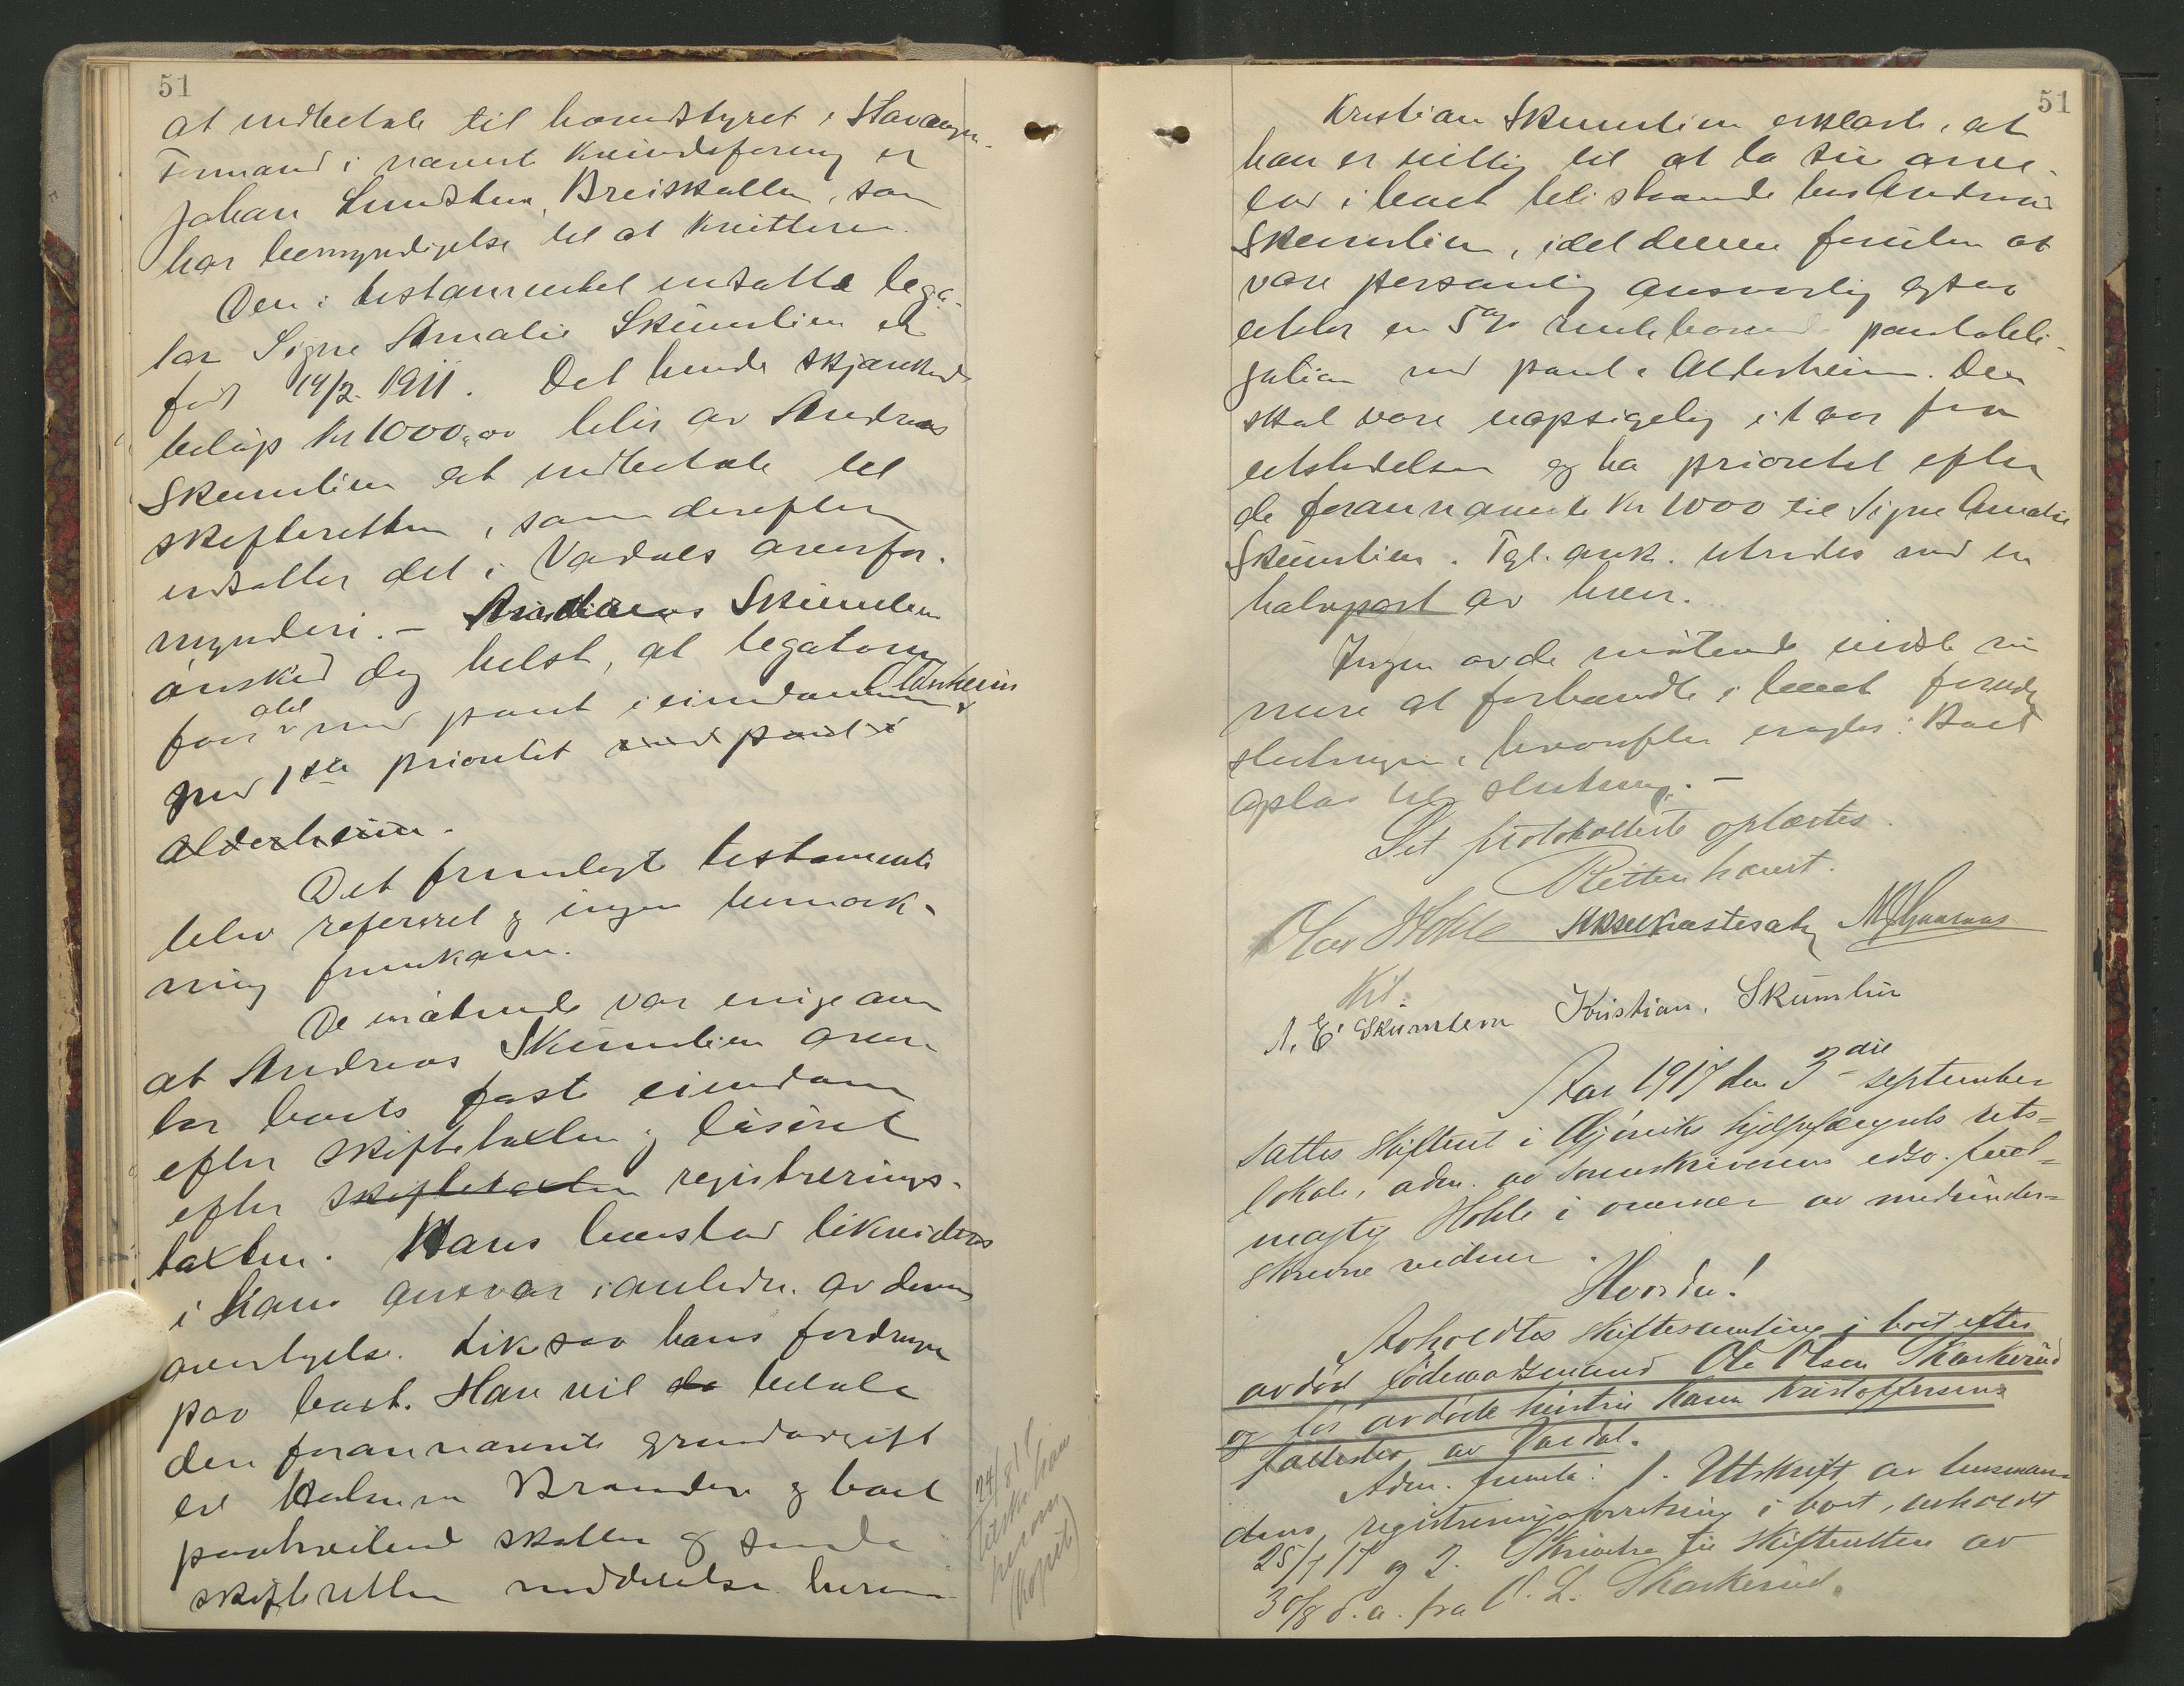 51
at indbetale til hovedstyret i Stavanger.
Formand i nævnte kvindeforening er
Johan Lundsten, Breiskallen, som
har bemyndigelse til at kvittere.
Den i testamentet indsatte lega-
tar Signe Amalie Skumlien er
født 14/2. 1911. Det hende skjænkede
beløp kr 1000,00 blir av Andreas
Skumlien at indbetale til
skifteretten, som derefter
indsætter det i Vardals overfor-
mynderi. - Andreas Skumlien
ønsked dog helst, at legataren
faar obl med pant i eiendommen Alderheim
med 1ste prioritet med pant i
Alderheim.
Det fremlagte testamente
blev referert og ingen bemærk-
ning fremkom.
De møtende var enige om
at Andreas Skumlien over-
tar boets faste eiendom
efter skiftetaxten og løsøret
efter skiftetaxten registrerings-
taxten. Hans boslod likvideres
i hans ansvar i anledn. av denne
overtagelse. Likesaa hans fordringer
paa boet. Han vil da betale
den forannævnte grundavgift
til Halvor Branden og boet
paahvilende skatter og sende
skifteretten meddelelse herom
24/8 17
51
Kristian Skumlien erklærte, at
han er villig til at la sin arve-
lod i boet bli staaende hos Andreas
Skumlien, idet denne foruten at
være personlig ansvarlig ogsaa
utster en 5% rentebærende pantobli-
gation med pant i Alderheim. Den
skal være uopsigelig i 1 aar fra
utstedelsen og ha prioritet efter
de forannævnte kr 1000 til Signe Amalie
Skumlien. Tgl. omk. utredes med en
halvpart av hver.
Ingen av de møtende vidste nu
mere at forhandle i boet foruten
slutningen, hvorefter eragtes: Boet
optas til slutning. -
Det protokollerte oplæstes.
Retten hævet.
Olav Hohle
Vit:
A. E. Skumlien Kristian. Skumlien
Aar 1917 den 3die september
sattes skifteret i Gjøviks hjelpefængsels rets-
lokale, adm. av sorenskriverens edsv. fuld-
mægtig Hohle i overvær av medunder-
skrevne vidner.
Hvorda!
Avholdtes skiftesamling i boet efter
avdød føderaadsmand Ole Olsen Skarkerud
og før avdøde hustru Karen Kristoffersens
fællesbo av Vardal.
Adm. freml: 1. Utskrift av lensman-
dens registreringsforretning i boet, avholdt
25/7 17 og 2. Skrivelse til skifteretten av
30/8 d.a. fra O. L. Skarkerud.